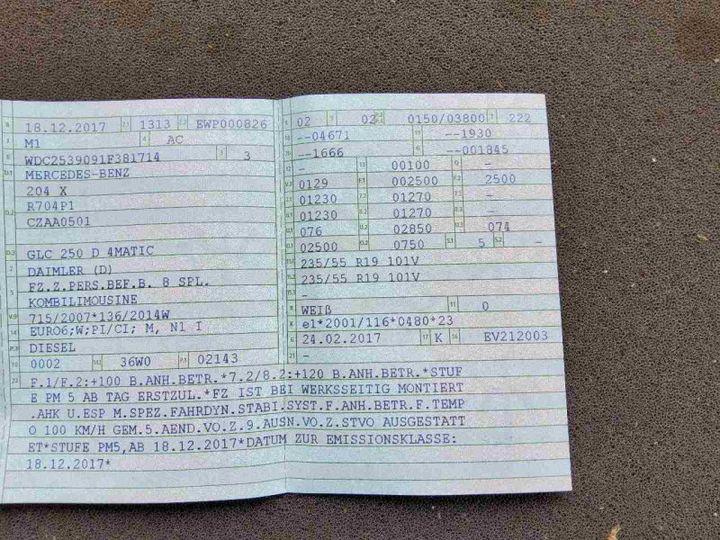 18.12.2017 1313 EWP000826
M1 AC
WDC2539091F381714 3
MERCEDES-BENZ
204 X
R704P1
CZAA0501
GLC 250 D 4MATIC
DAIMLER (D)
FZ.Z.PERS.BEF.B. 8 SPL.
KOMBILIMOUSINE
715/2007*136/2014W
EURO6;W;PI/CI; M, N1 I
DIESEL
0002 36W0 02143
02 02 0150/03800 222
--04671 --1930
--1666 --001845
- 00100 -
0129 002500 2500
01230 01270 -
01230 01270 -
076 02850 074
02500 0750 5 -
235/55 R19 101V
235/55 R19 101V
-
WEIß 0
e1*2001/116*0480*23
24.02.2017 K EV212003
-
F.1/F.2:+100 B.ANH.BETR.*7.2/8.2:+120 B.ANH.BETR.*STUF
E PM 5 AB TAG ERSTZUL.*FZ IST BEI WERKSSEITIG MONTIERT
.AHK U.ESP M.SPEZ.FAHRDYN.STABI.SYST.F.ANH.BETR.F.TEMP
O 100 KM/H GEM.5.AEND.VO.Z.9.AUSN.VO.Z.STVO AUSGESTATT
ET*STUFE PM5,AB 18.12.2017*DATUM ZUR EMISSIONSKLASSE:
18.12.2017*